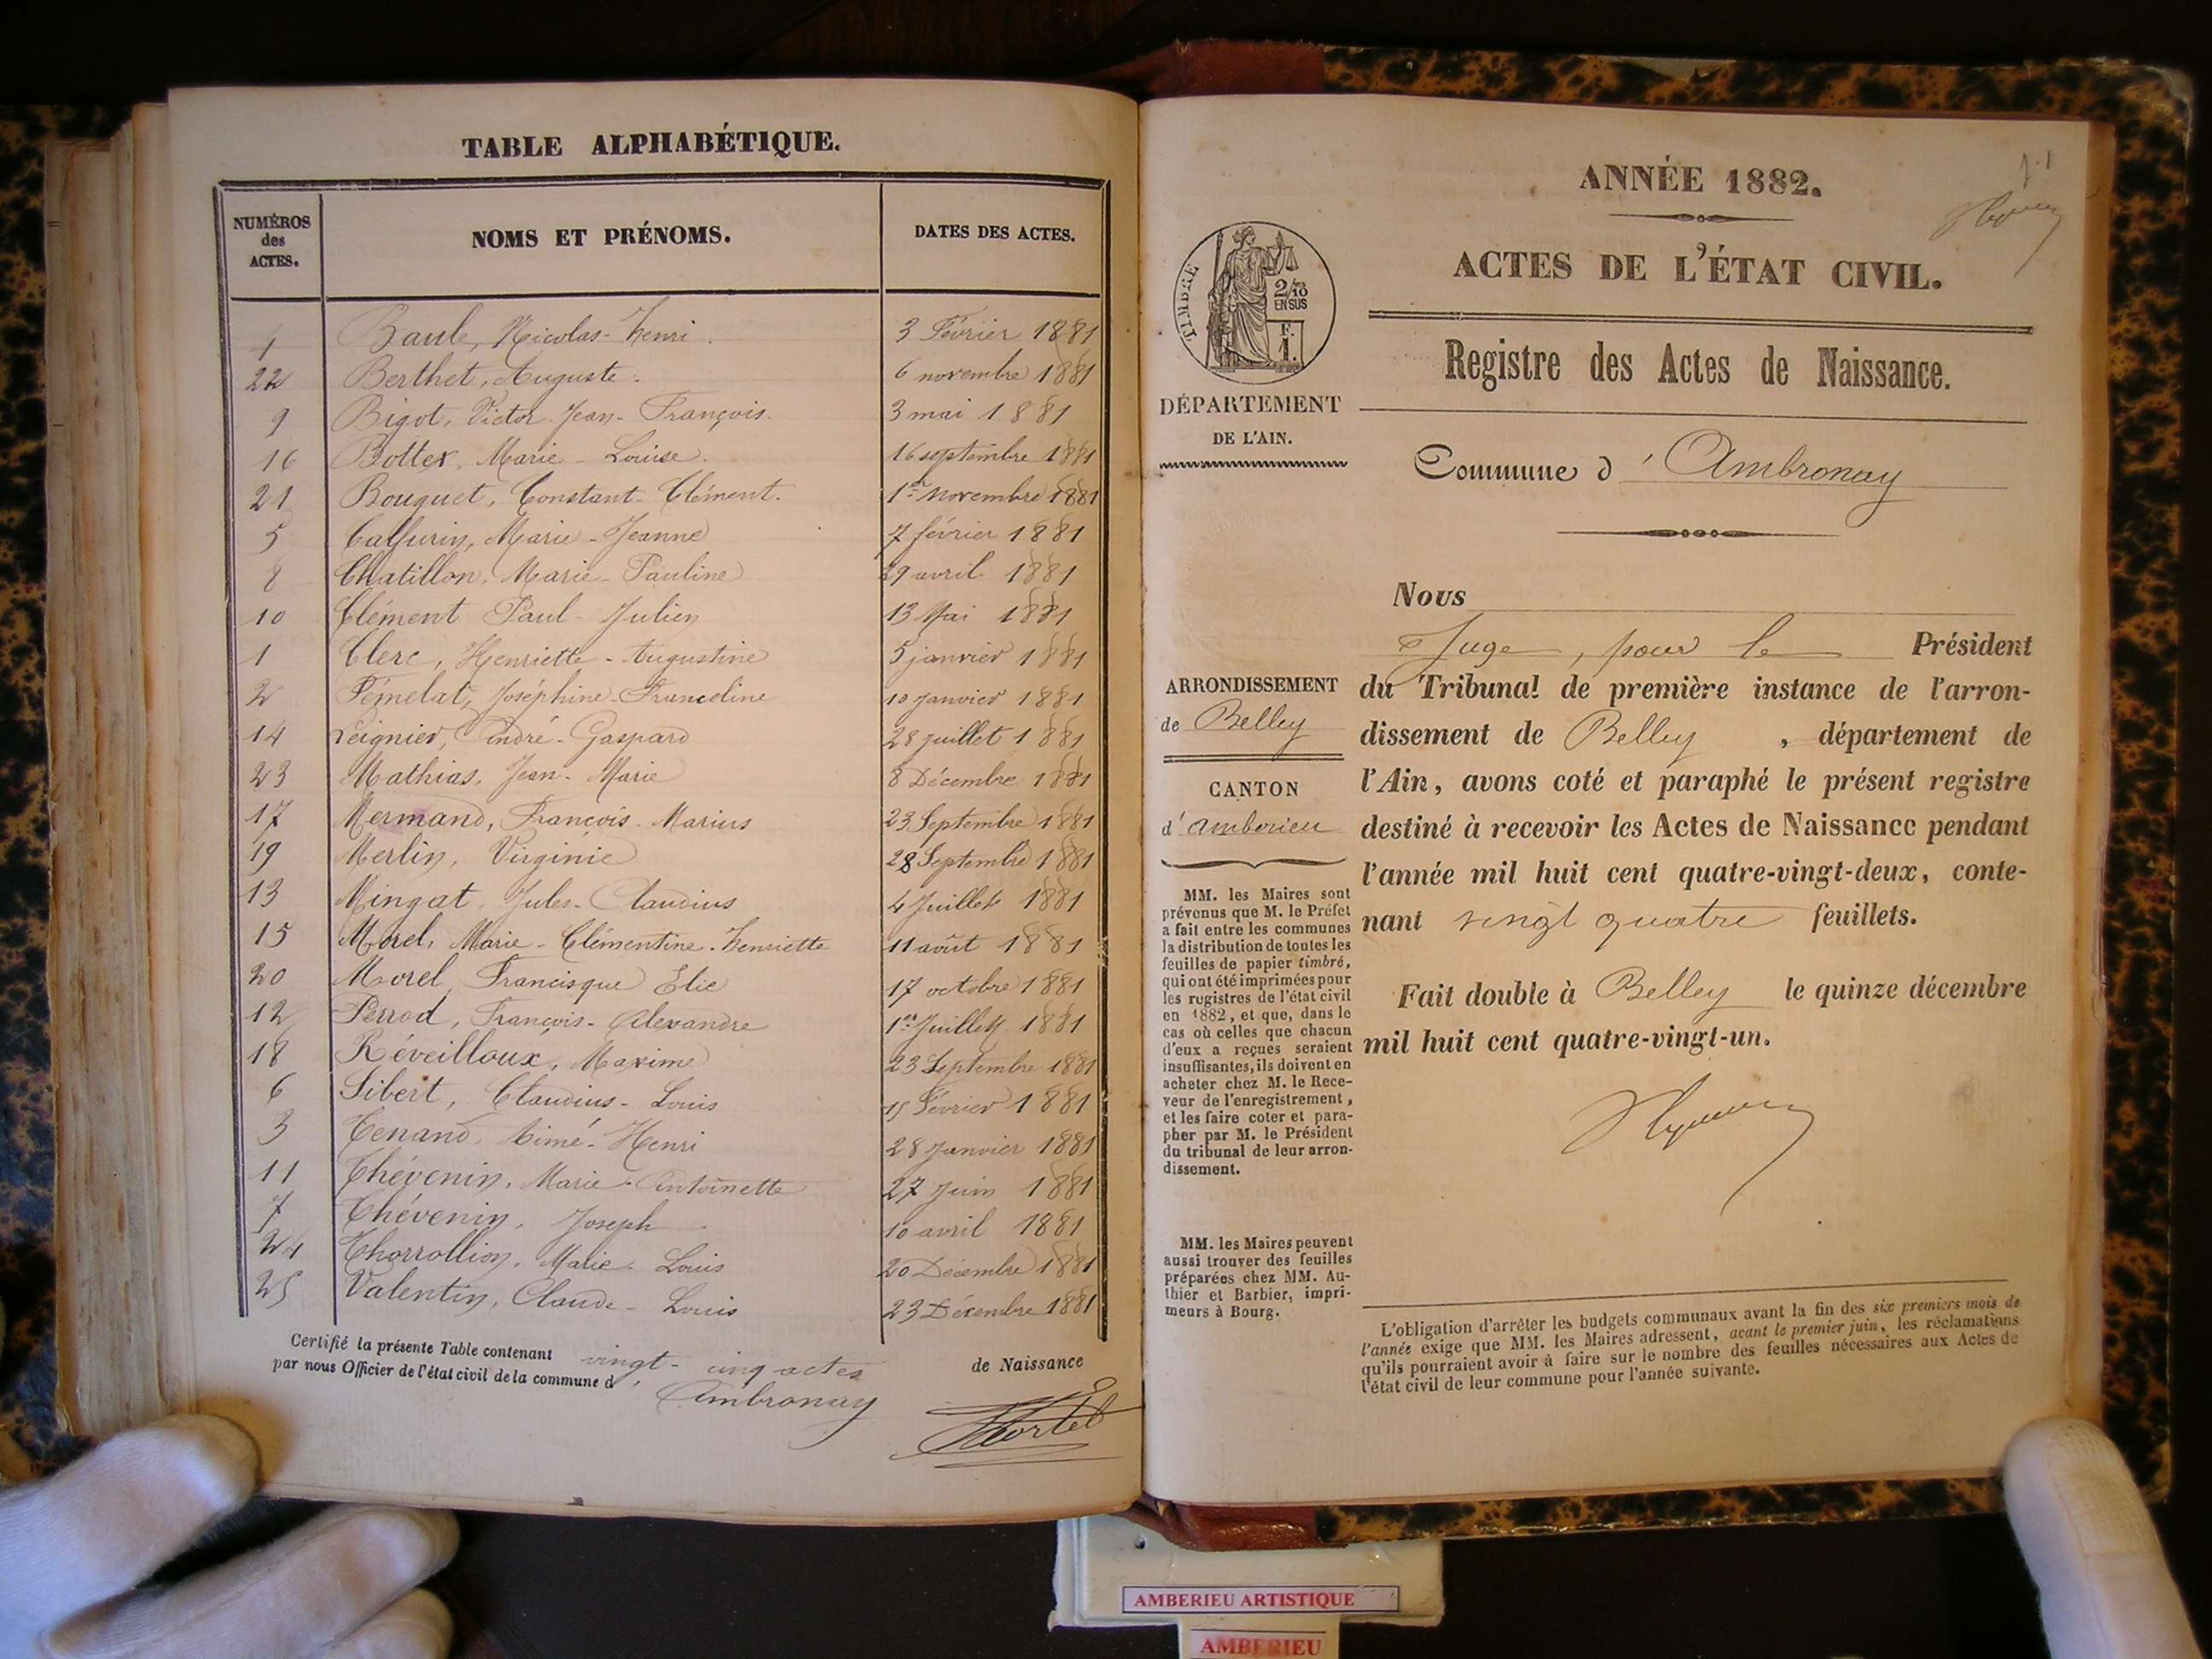 TABLE ALPHABÉTIQUE.
NUMÉROS des ACTES. NOMS ET PRÉNOMS. DATES DES ACTES.
4 Baule, Nicolas-Henri. 3 Février 1881
22 Berthet, Auguste. 6 novembre 1881
9 Bigot, Victor Jean-François. 3 mai 1881
16 Bottex, Marie-Louise. 16 septembre 1881
21 Bouquet, Constant-Clément. 1er Novembre 1881
5 Marie-Jeanne 7 février 1881
8 Chatillon, Marie-Pauline 29 avril 1881
10 Clément Paul-Julien 13 Mai 1881
1 Clerc, Henriette-Augustine 5 janvier 1881
2 Joséphine-Franceline 10 Janvier 1881
14 André-Gaspard 28 juillet 1881
23 Mathias, Jean-Marie 8 Décembre 1881
17 Mermand, François-Marius 23 Septembre 1881
19 Merlin, Virginie 28 Septembre 1881
13 Mingat, Jules-Claudius 4 Juillet 1881
15 Morel, Marie-Clémentine-Henriette 11 août 1881
20 Morel, Francisque Elie 17 octobre 1881
12 Perrod, François-Alexandre 1er Juillet 1881
18 Réveilloux, Maxime 23 Septembre 1881
6 Sibert, Claudius-Louis 15 Février 1881
3 Tenand, Aimé-Henri 28 Janvier 1881
11 Thévenin, Marie-Antoinette 27 Juin 1881
7 Thévenin, Joseph 10 avril 1881
24 Marie-Louis 20 Décembre 1881
25 Valentin, Claude-Louis 23 Décembre 1881
Certifié la présente Table contenant vingt-cinq actes de Naissance
par nous Officier de l'état civil de la commune d'Ambronay
ANNÉE 1882.
ACTES DE L'ÉTAT CIVIL.
Registre des Actes de Naissance.
TIMBRE
2/10 EN SUS
F. 1.
DÉPARTEMENT
DE L'AIN.
Commune d'Ambronay
ARRONDISSEMENT
de Belley
CANTON
d'Amberieu
MM. les Maires sont
prévenus que M. le Préfet
a fait entre les communes
la distribution de toutes les
feuilles de papier timbré,
qui ont été imprimées pour
les registres de l'état civil
en 1882, et que, dans le
cas où celles que chacun
d'eux a reçues seraient
insuffisantes, ils doivent en
acheter chez M. le Rece-
veur de l'enregistrement,
et les faire coter et para-
pher par M. le Président
du tribunal de leur arron-
dissement.
MM. les Maires peuvent
aussi trouver des feuilles
préparées chez MM. Au-
thier et Barbier, impri-
meurs à Bourg.
Nous
Juge, pour le Président
du Tribunal de première instance de l'arron-
dissement de Belley, département de
l'Ain, avons coté et paraphé le présent registre
destiné à recevoir les Actes de Naissance pendant
l'année mil huit cent quatre-vingt-deux, conte-
nant vingt quatre feuillets.
Fait double à Belley le quinze décembre
mil huit cent quatre-vingt-un.
L'obligation d'arrêter les budgets communaux avant la fin des six premiers mois de
l'année exige que MM. les Maires adressent, avant le premier juin, les réclamations
qu'ils pourraient avoir à faire sur le nombre des feuilles nécessaires aux Actes de
l'état civil de leur commune pour l'année suivante.
AMBERIEU ARTISTIQUE
AMBERIEU